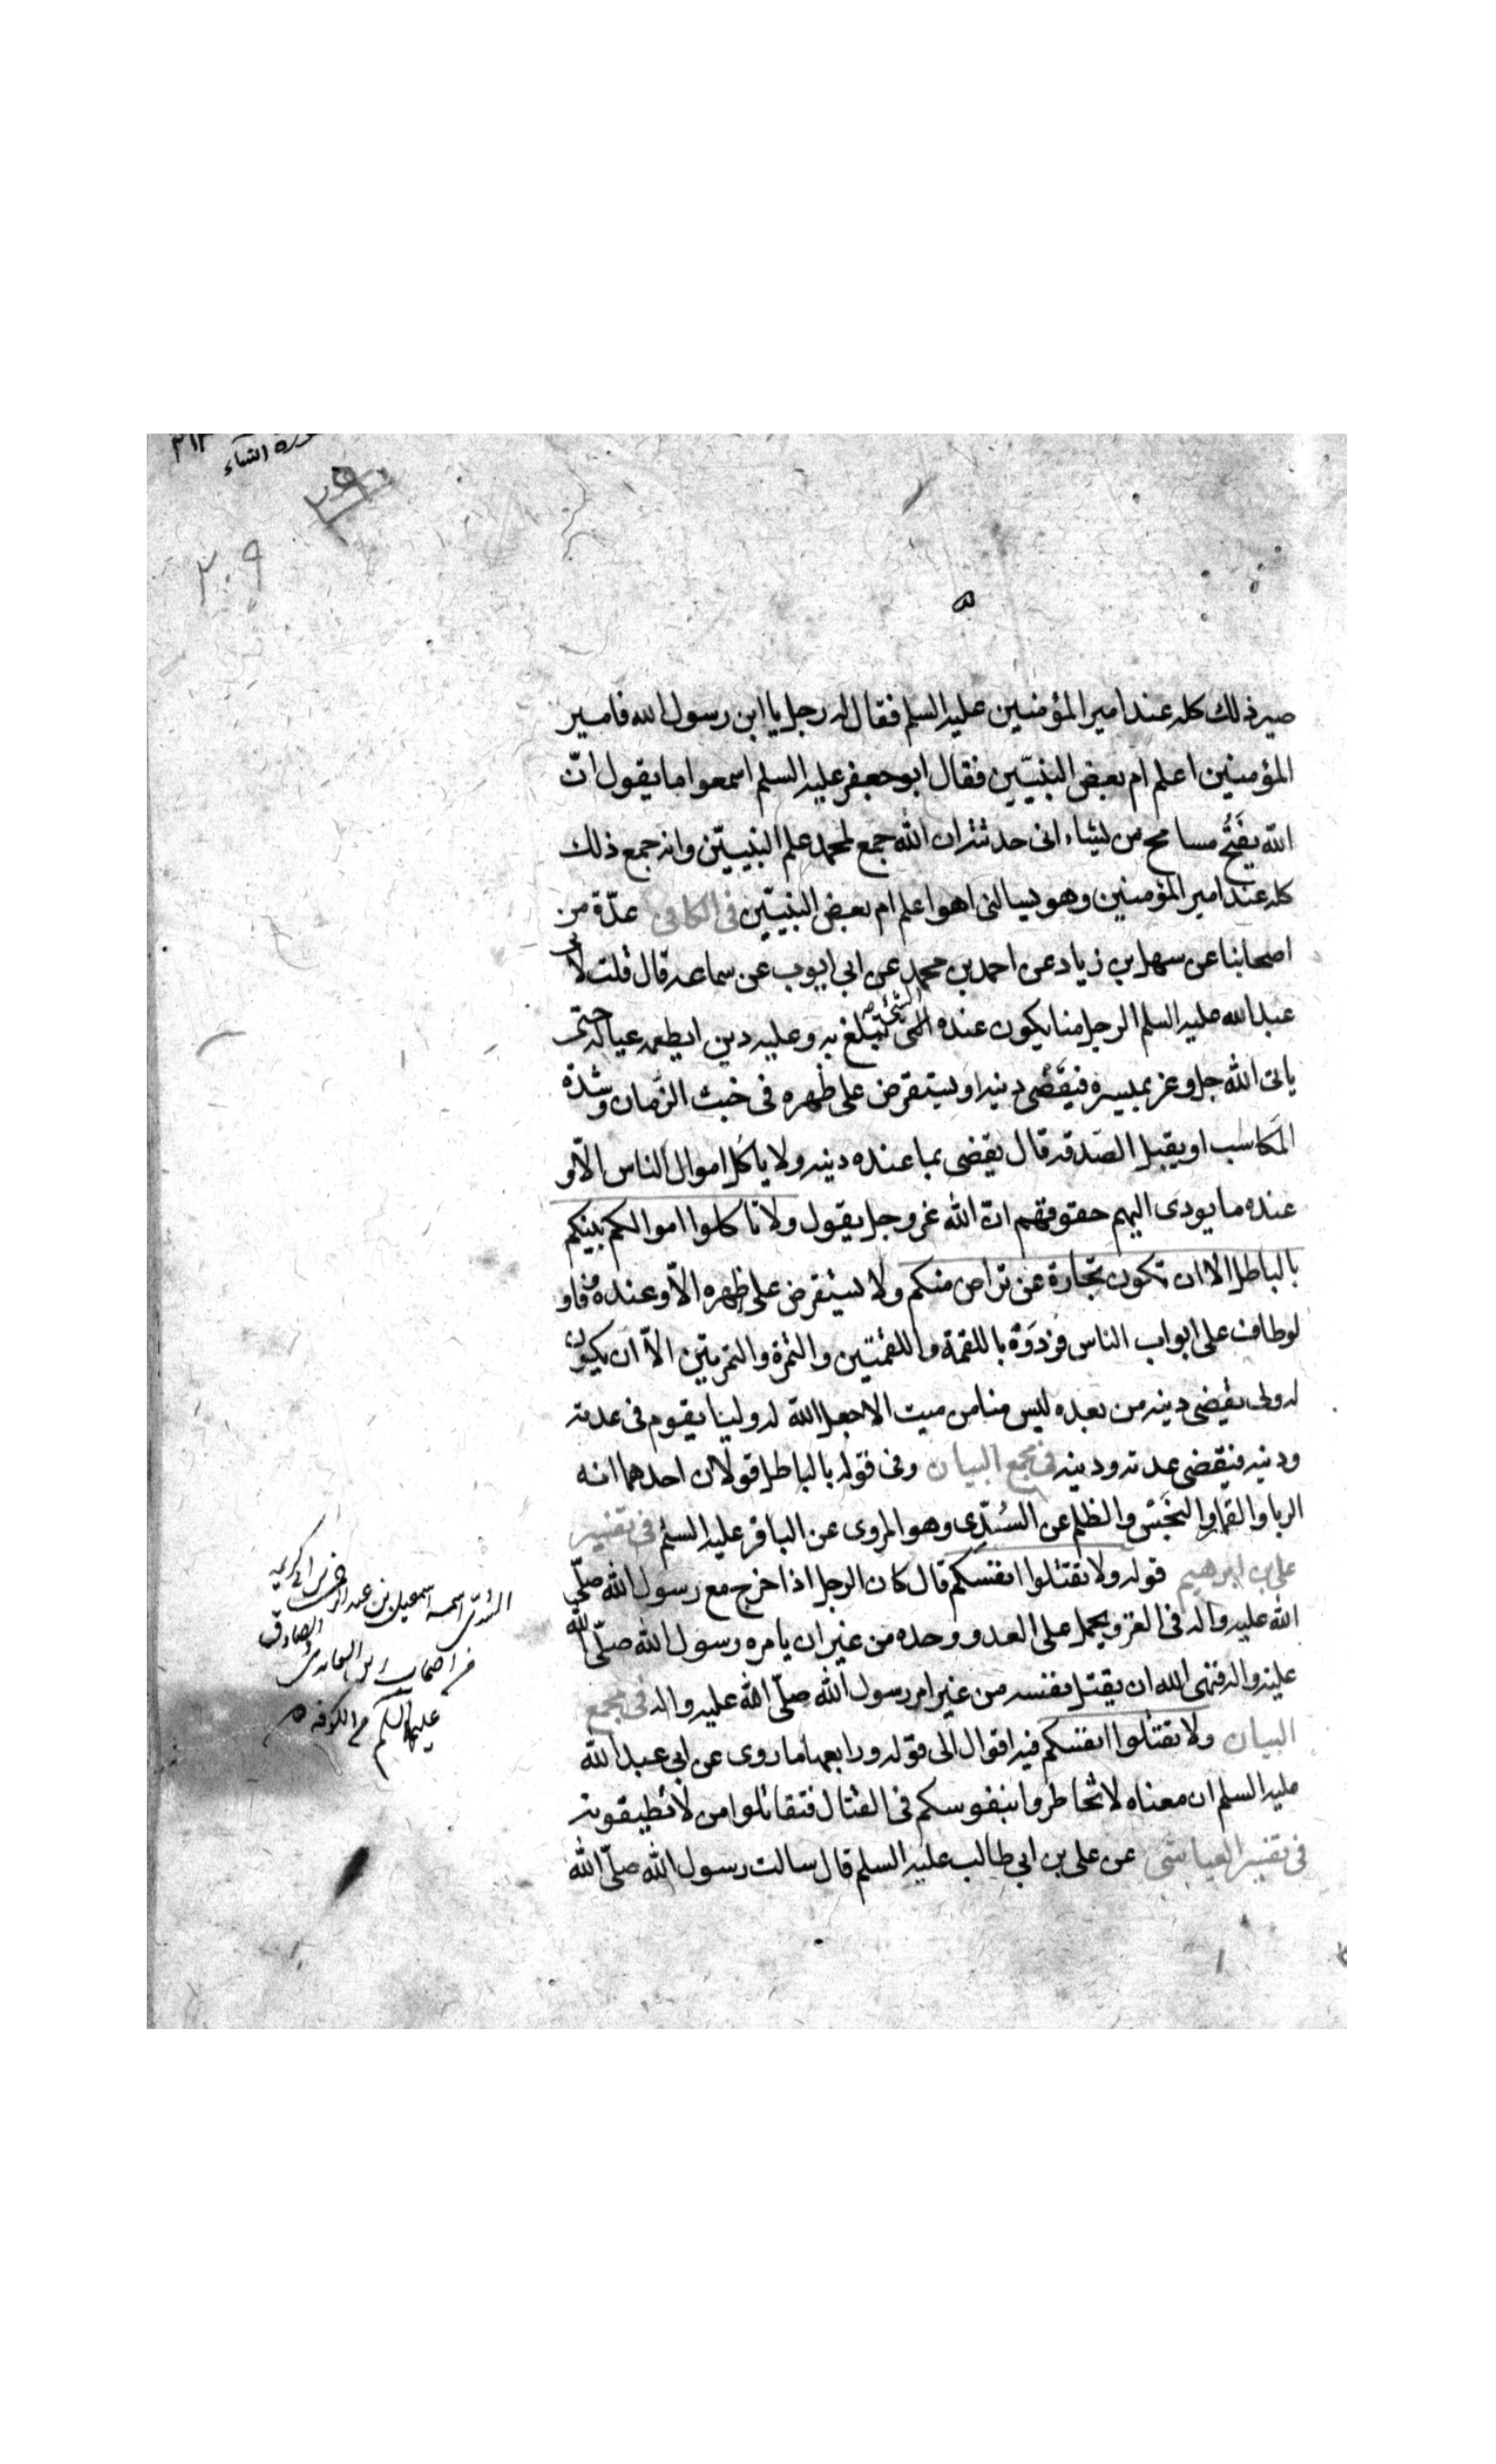 سورة النساء
٢٩
٢٠٩
صير ذلك كله عند امير المؤمنين عليه السلم فقال له رجل يا ابن رسول الله فامير
المؤمنين اعلم ام بعض النبيّين فقال ابو جعفر عليه السلم اسمعوا ما يقول انّ
الله يفتح مسامح من يشاء انى حدثته ان الله جمع لمحمد علم النبيّين وانه جمع ذلك
كله عند امير المؤمنين وهو يسالنى اهو اعلم ام بعض النبيّين فى الكافى عدّة من
اصحابنا عن سهل بن زياد عن احمد بن محمد عن ابى ايوب عن سماعه قال قلت لابى
عبد الله عليه السلم الرجل منا يكون عنده الشئ يتبلغ به وعليه دين ايطعمه عياله حتى
ياتى الله جل وعز بميسرة فيقضى دينه او يستقرض على ظهره فى خبث الزمان وشدّة
المكاسب او يقبل الصّدقه قال يقضى بما عنده دينه ولا ياكل اموال الناس الّا و
عنده ما يودى اليهم حقوقهم انّ الله عز وجل يقول ولا تاكلوا اموالكم بينكم
بالباطل الا ان تكون تجارة عن تراض منكم ولا يستقرض على ظهره الّا وعنده وفا و
لو طاف على ابواب الناس فردّوه باللقمة واللقمتين والتمرة والتمرتين الّا ان يكون
له ولى يقضى دينه من بعده ليس منا من ميت الا جعل الله له وليا يقوم فى عدته
ودينه فيقضى عدته ودينه فى مجمع البيان وفى قوله بالباطل قولان احدهما انه
الربا والقمار والبخس والظلم عن السّدّى وهو المروى عن الباقر عليه السلم فى تفسير
على بن ابرهيم قوله ولا تقتلوا انفسكم قال كان الرجل اذا خرج مع رسول الله صلّى
الله عليه واله فى الغزو يحمل على العدو وحده من غير ان يامره رسول الله صلّى الله
عليه واله فنهى الله ان يقتل نفسه من غير امر رسول الله صلّى الله عليه واله فى مجمع
البيان ولا تقتلوا انفسكم فيه اقوال الى قوله ورابعها ما روى عن ابى عبد الله
عليه السلم ان معناه لا تخاطروا بنفوسكم فى القتال فتقاتلوا من لا تطيقونه
فى تفسير العياشى عن على بن ابى طالب عليه السلم قال سالت رسول الله صلّى الله
السّدّى اسمه اسمعيل بن عبد الرحمن بن ابى كريمه
من اصحاب الصادق
عليهم السلم من الكوفه